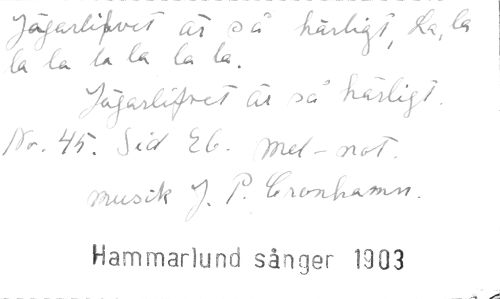 Jägarlifvet är så härligt, La, la
la la la la la la.
Jägarlifvet är så härligt.
No. 45. Sid 26. Mel-not.
musik J. P. Cronhamn.
Hammarlund sånger 1903